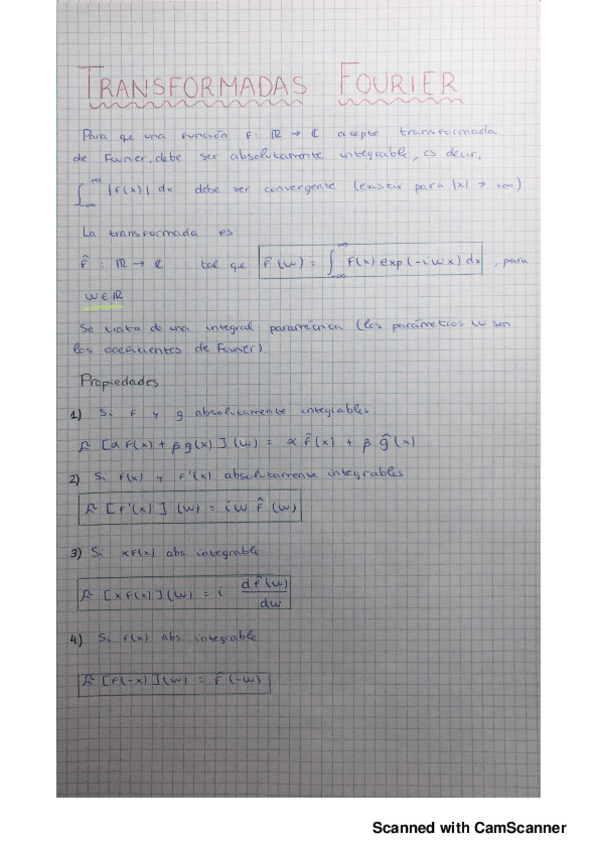 TRANSFORMADAS FOURIER
Para qe una función f: ℝ → ℂ acepte transformada
de Fourier, debe ser absolutamente integrable, es decir,
∫_{-∞}^{∞} |f(x)| dx debe ser convergente (existir para |x| → +∞)
La transformada es
f̂ : ℝ → ℂ tal qe f̂(w) = ∫_{-∞}^{∞} f(x) exp(-iwx) dx , para
w∈ℝ
Se trata de una integral paramétrica (los parámetros w son
los coeficientes de Fourier)
Propiedades
1) Si f y g absolutamente integrables
F [αf(x) + βg(x)](w) = α f̂(x) + β ĝ(x)
2) Si f(x) y f'(x) absolutamente integrables
F [f'(x)](w) = iw f̂(w)
3) Si xf(x) abs integrable
F [xf(x)](w) = i df̂(w)/dw
4) Si f(x) abs integrable
F [f(-x)](w) = f̂(-w)
Scanned with CamScanner